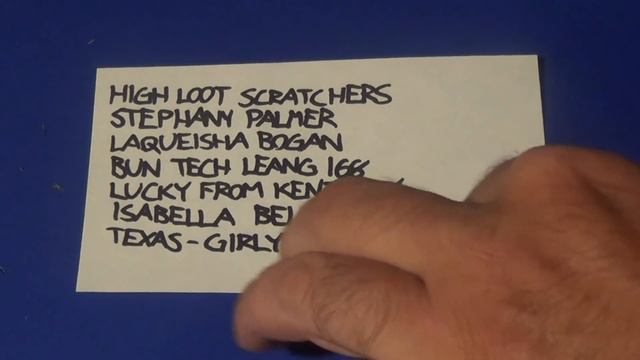 HIGH LOOT SCRATCHERS
STEPHANY PALMER
LAQUEISHA BOGAN
BUN TECH LEANG 168
LUCKY FROM
ISABELLA
TEXAS-GIRLY